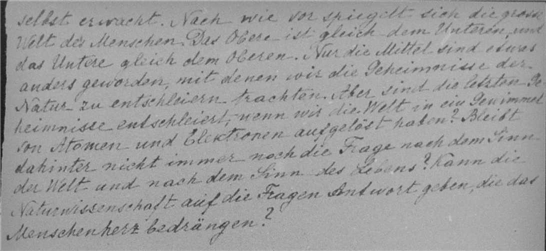 selbst erwacht. Nach wie vor spiegelt sich die grosse
Welt des Menschen. Das Obere ist gleich dem Unteren, und
das Untere gleich dem Oberen. Nur die Mittel sind etwas
anders geworden, mit denen wir die Geheimnisse der
Natur zu entschleiern trachten. Aber sind die letzten Ge
heimnisse entschleiert, wenn wir die Welt in ein Gewimmel
von Atomen und Elektronen aufgelöst haben? Bleibt
dahinter nicht immer noch die Frage nach dem Sinn
der Welt und nach dem Sinn des Lebens? Kann die
Naturwissenschaft auf die Fragen Antwort geben, die das
Menschenherz bedrängen?